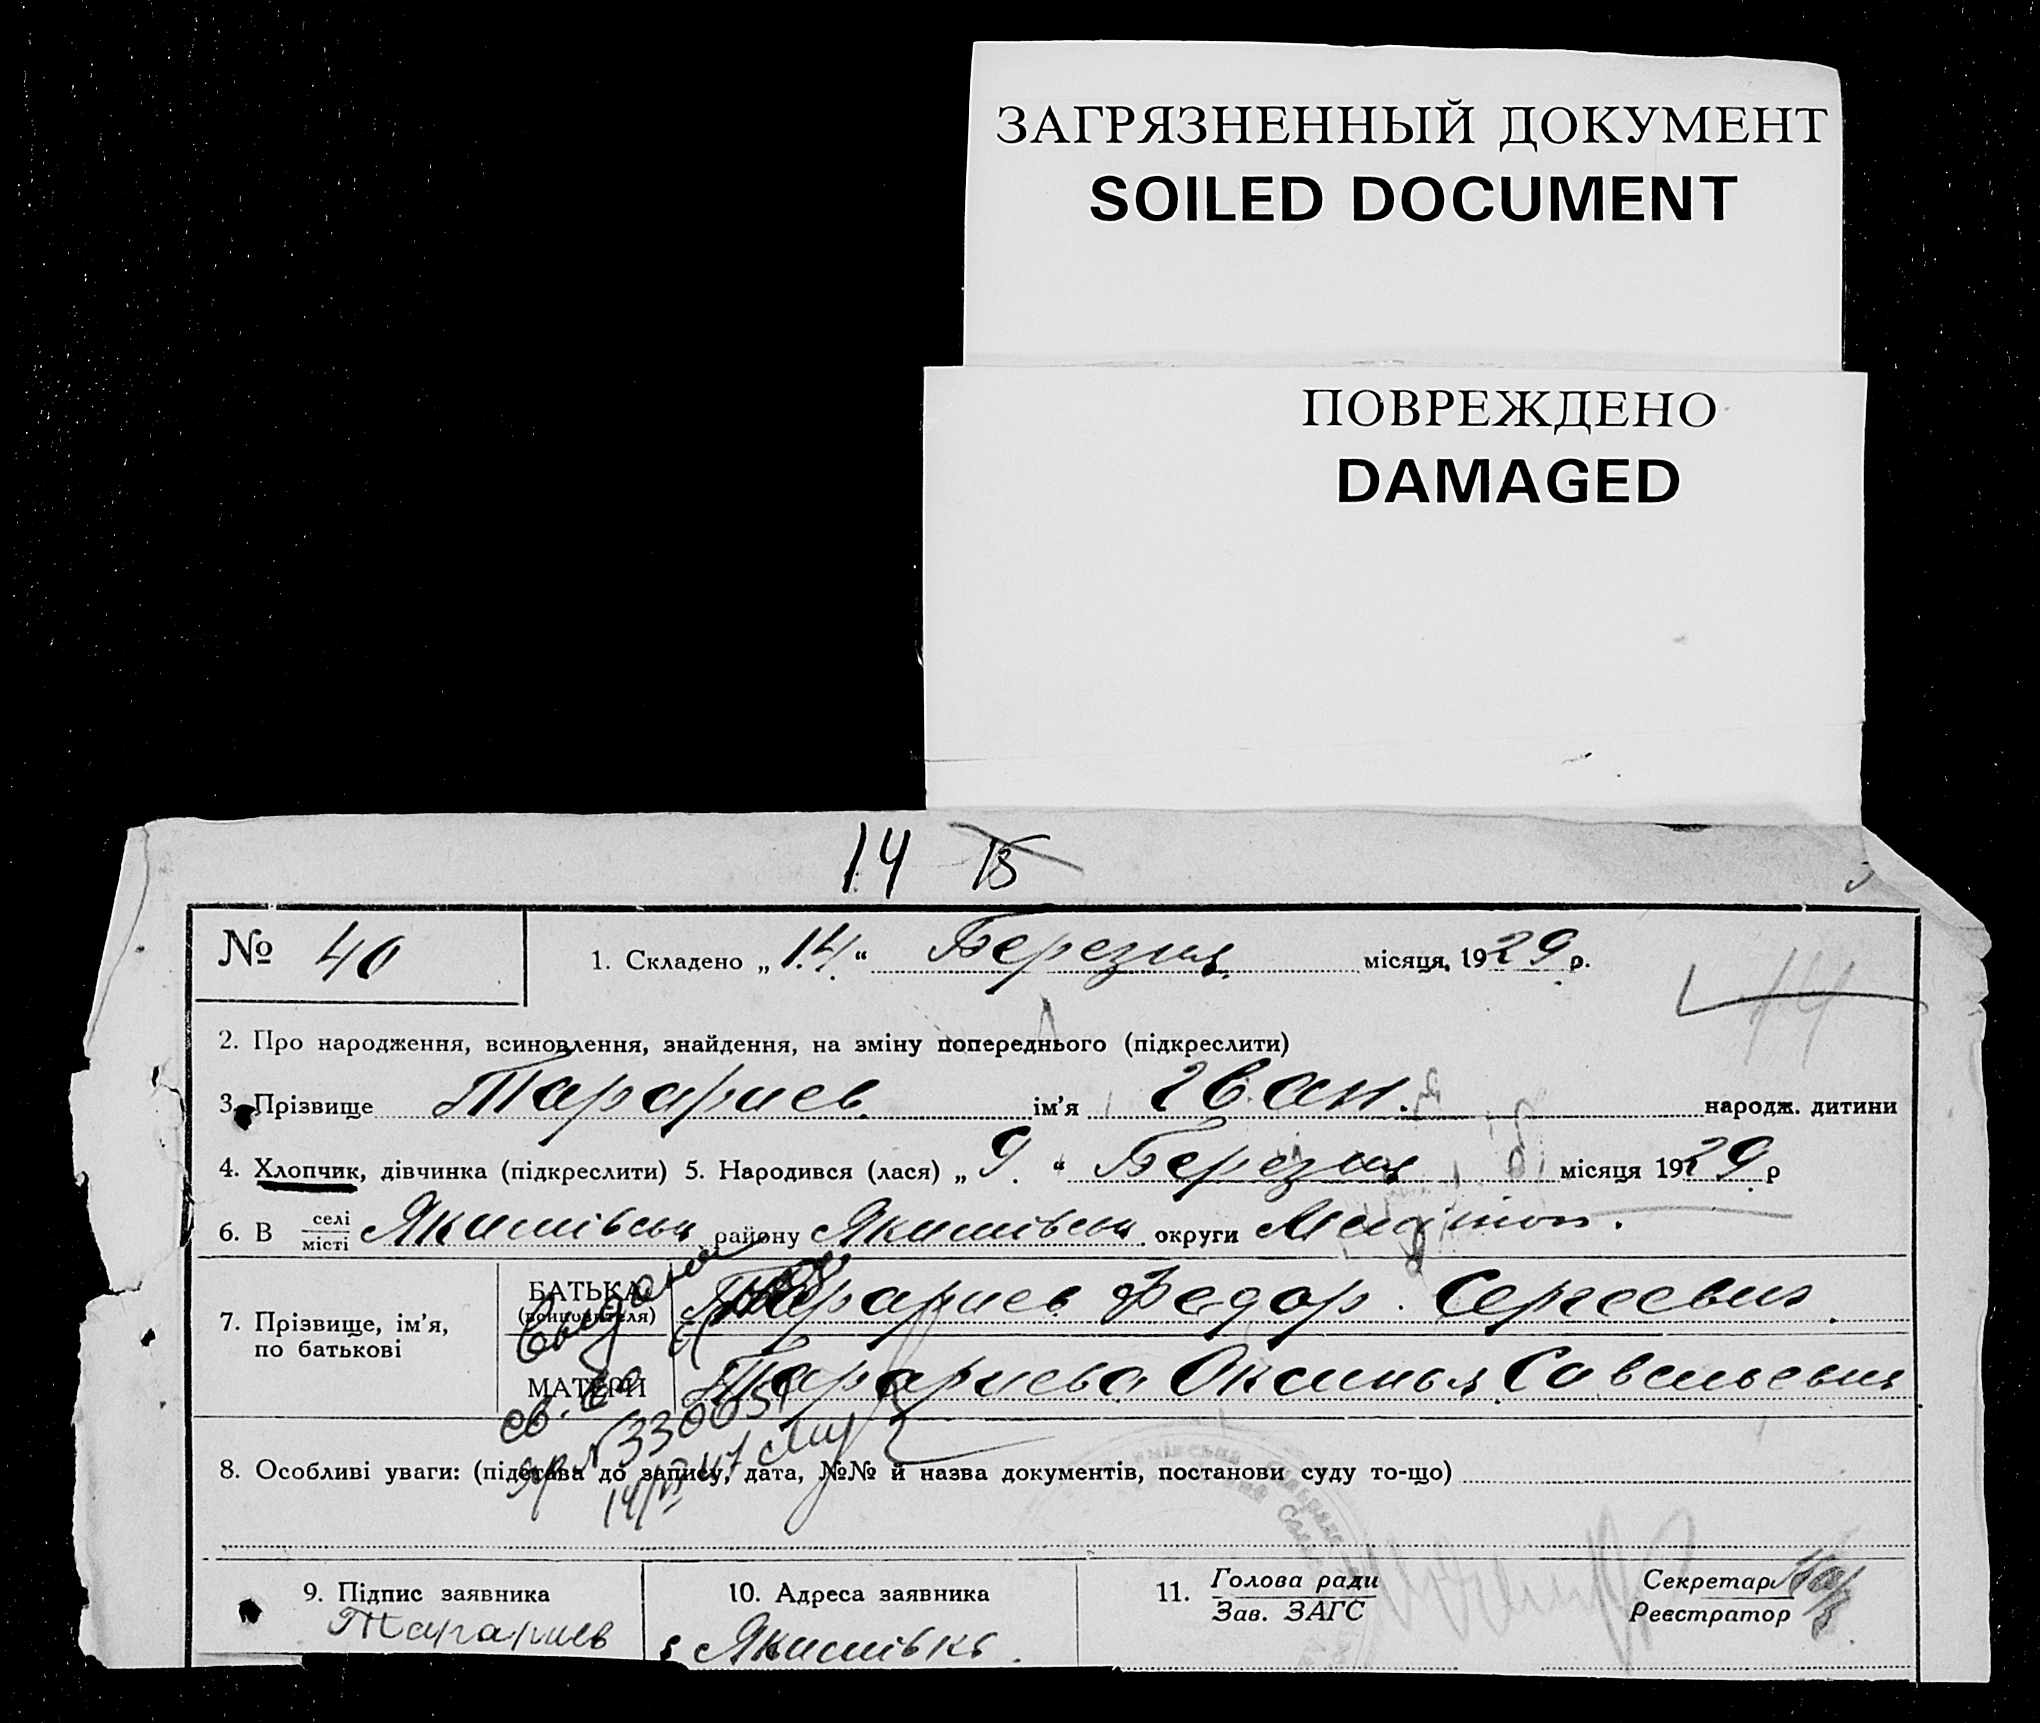 ЗАГРЯЗНЕННЫЙ ДОКУМЕНТ
SOILED DOCUMENT
ПОВРЕЖДЕНО
DAMAGED
14 13
№ 40 1. Складено „14“ Березня місяця, 1929 р.
14
2. Про народження, всиновлення, знайдення, на зміну попереднього (підкреслити)
3. Прізвище Тарариев ім’я Іван. народж. дитини
4. Хлопчик, дівчинка (підкреслити) 5. Народився (лася) „9“ Березня місяця 1929 р
6. В селі місті Якимівськ району Якимівськ округи Мелітоп.
7. Прізвище, ім’я, по батькові
БАТЬКА (всиновителя) Тарариев Федор Сергеевич
МАТЕРИ Тарариева Оксинья Савельевна
8. Особливі уваги: (підстава до запису, дата, №№ й назва документів, постанови суду то-що)
9. Підпис заявника 10. Адреса заявника 11. Голова ради Секретар
Зав. ЗАГС Реєстратор
Тарариев Якимівка